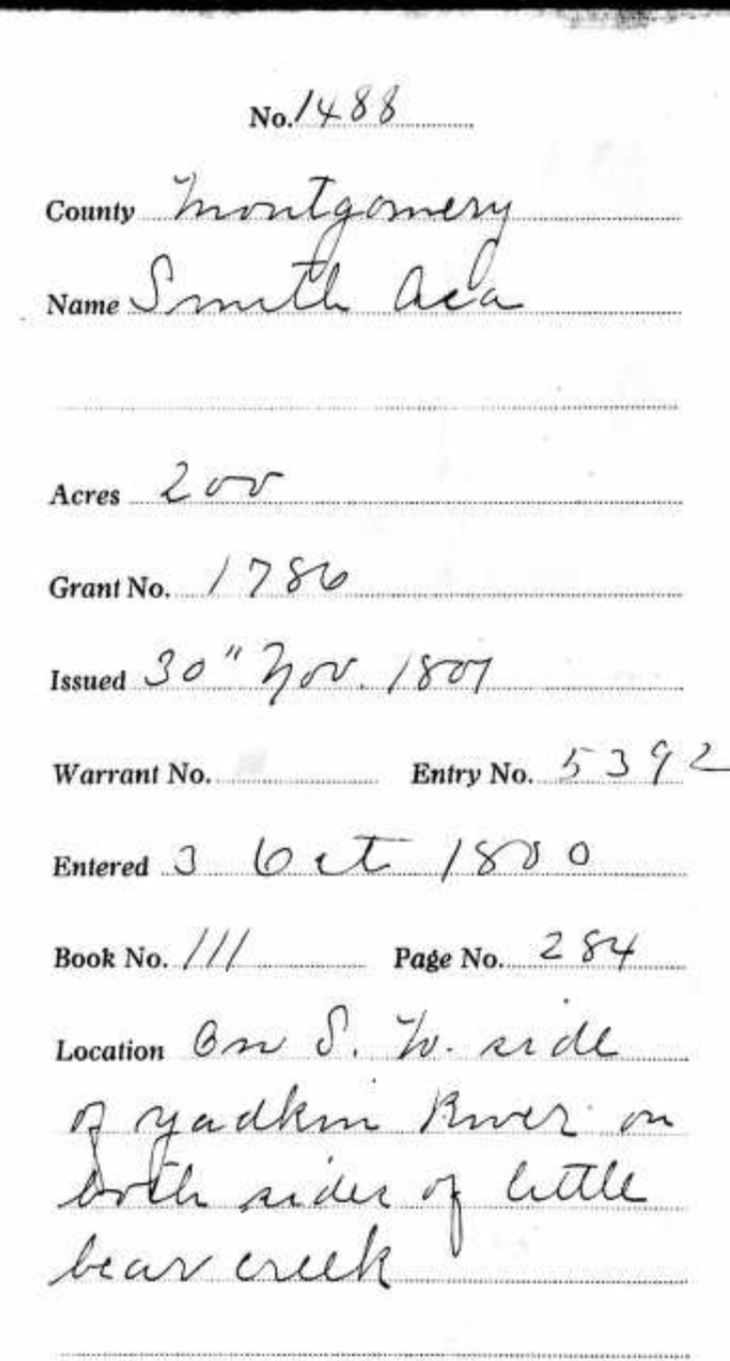 No. 1488
County Montgomery
Name Smith Asa
Acres 200
Grant No. 1786
Issued 30" Nov. 1801
Warrant No. Entry No. 5392
Entered 3 Oct 1800
Book No. 111 Page No. 284
Location On S. W. side
of Yadkin River on
both sides of little
bear creek